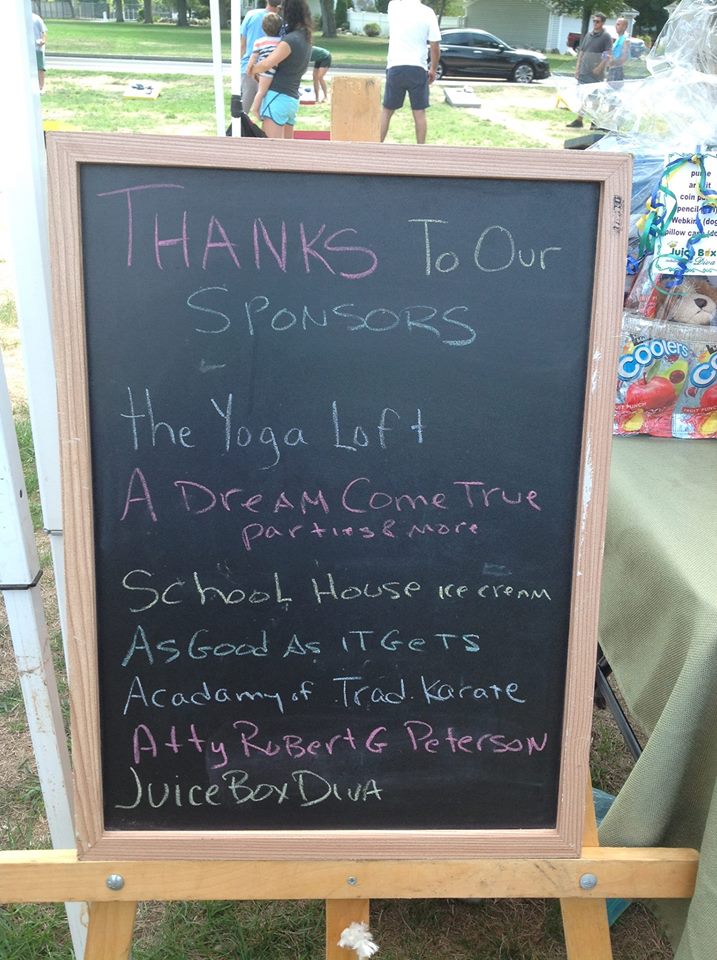 THANKS To Our
SPONSORS
the Yoga Loft
A DreAM Come True
parties & more
School House ice cream
As Good As IT GeTS
Acadamy of Trad. Karate
Atty RoBert G Peterson
Juice Box DivA
coin
Webkin
Juic Box
Diva
Coolers
FRUIT PUNCH